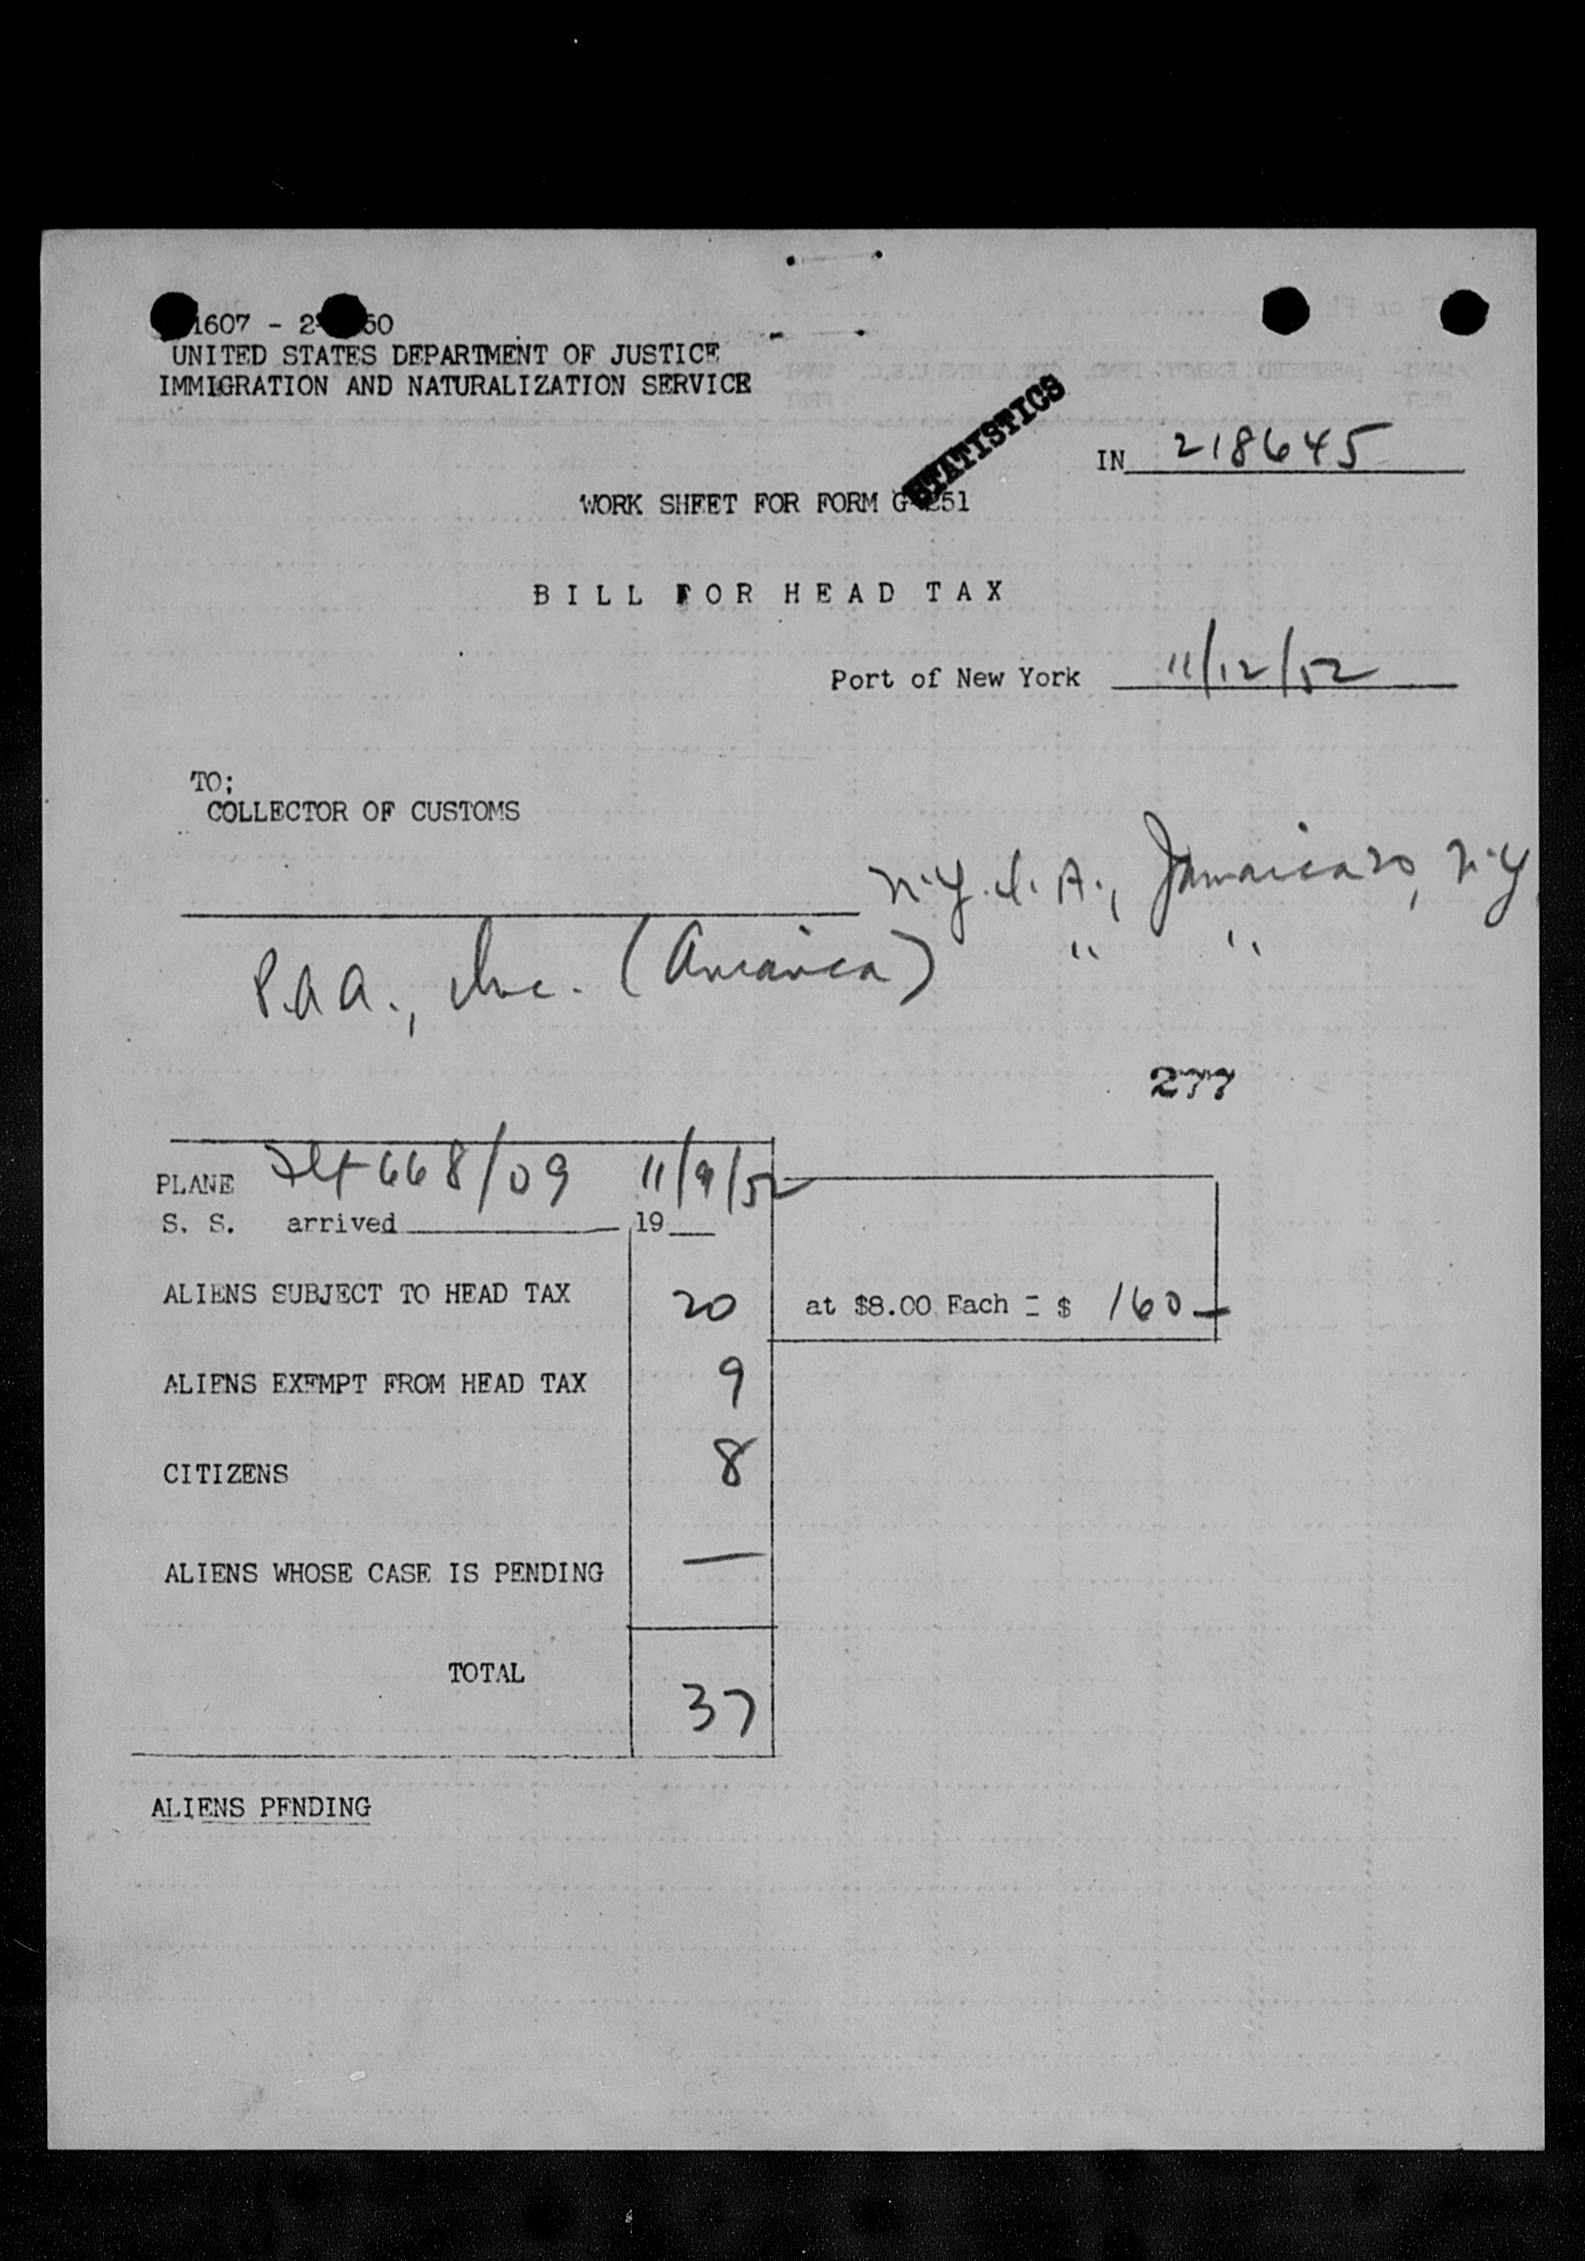 1607 - 2 50
UNITED STATES DEPARTMENT OF JUSTICE
IMMIGRATION AND NATURALIZATION SERVICE
STATISTICS
IN 218645
WORK SHEET FOR FORM G-251
BILL FOR HEAD TAX
Port of New York 11/12/52
TO:
COLLECTOR OF CUSTOMS
N.Y.I.A., Jamaica 30, N.Y.
P.A.A., Inc. ( ) " "
277
PLANE Flt 668/09 11/9/52
S. S. arrived 19
ALIENS SUBJECT TO HEAD TAX 20 at $8.00 Each = $ 160 —
ALIENS EXEMPT FROM HEAD TAX 9
CITIZENS 8
ALIENS WHOSE CASE IS PENDING —
TOTAL 37
ALIENS PENDING